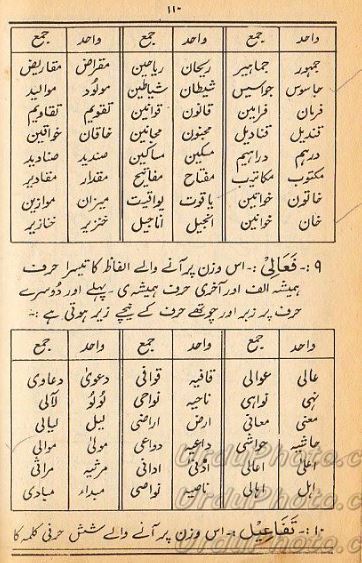 ۱۱۰
واحد جمع واحد جمع واحد جمع
جمہور جماہیر ریحان ریاحین مقراض مقاریض
جاسوس جواسیس شیطان شیاطین مولود موالید
فرمان فرامین قانون قوانین تقویم تقاویم
قندیل قنادیل مجنون مجانین خاقان خواقین
درہم دراہیم مسکین مساکین صندید صنادید
مکتوب مکاتیب مفتاح مفاتیح مقدار مقادیر
خاتون خواتین یاقوت یواقیت میزان موازین
خان خوانین انجیل اناجیل خنزیر خنازیر
۹ :- فَعَالِیْ :- اس وزن پر آنے والے الفاظ کا تیسرا حرف
ہمیشہ الف اور آخری حرف ہمیشہ ی - پہلے اور دُوسرے
حرف پر زبر اور چوتھے حرف کے نیچے زیر ہوتی ہے :-
واحد جمع واحد جمع واحد جمع
عالی عوالی قافیہ قوافی دعویٰ دعاوی
نہی نواہی ناحیہ نواحی لُولُو لآلی
معنی معانی ارض اراضی لیل لیالی
حاشیہ حواشی داعیہ دواعی مولیٰ موالی
اعلیٰ اعالی ادنیٰ ادانی مرثیہ مراثی
اہل اہالی ناصیہ نواصی مبداء مبادی
۱۰ :- تَفَاعِیْل :- اس وزن پر آنے والے شش حرفی کلمہ کا
UrduPhoto.com
UrduPhoto.com